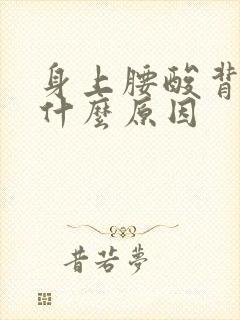 身上腰酸背
什麼原因
昔若夢